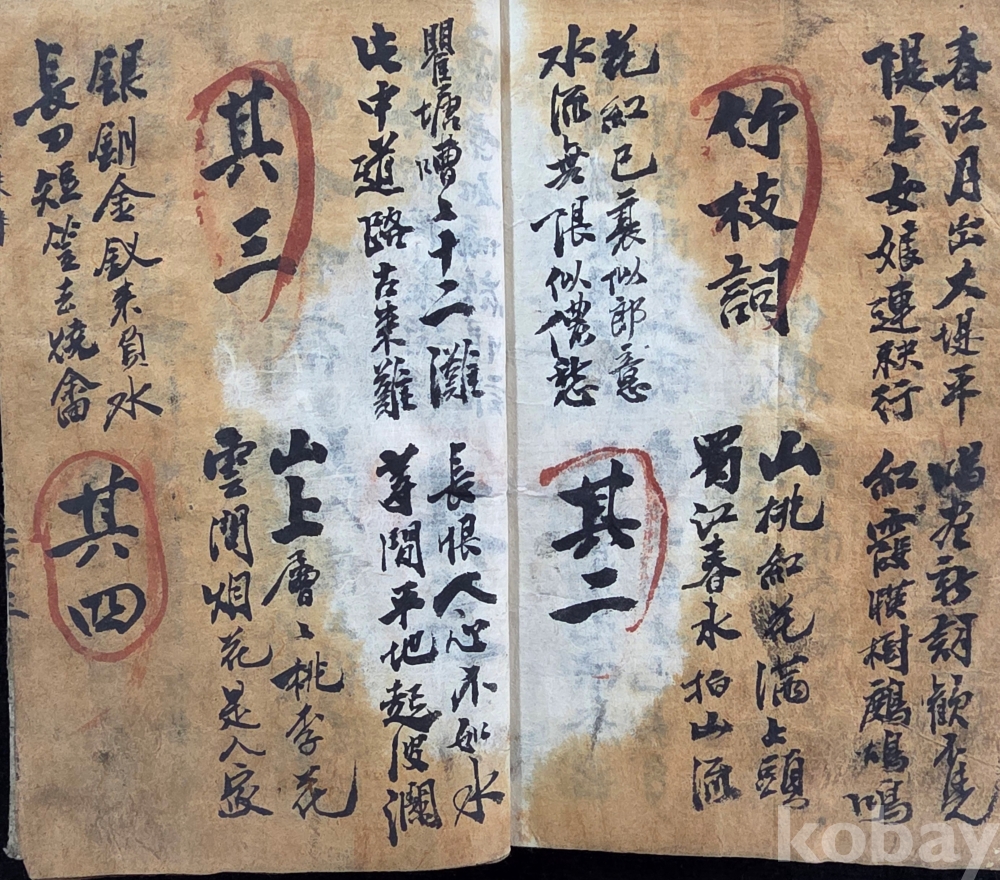 春江月出大堤平
隄上女娘連袂行
唱盡新詞歡不見
紅霞暎樹鷓鴣鳴
竹枝詞
山桃紅花滿上頭
蜀江春水拍山流
花紅已衰似郎意
水流無限似儂愁
其二
瞿塘嘈〻十二灘
此中道路古來難
長恨人心不如水
等閒平地起波瀾
其三
山上層〻桃李花
雲間烟花是人家
銀釧金釵來負水
長刀短笠去燒畬
其四
kobay